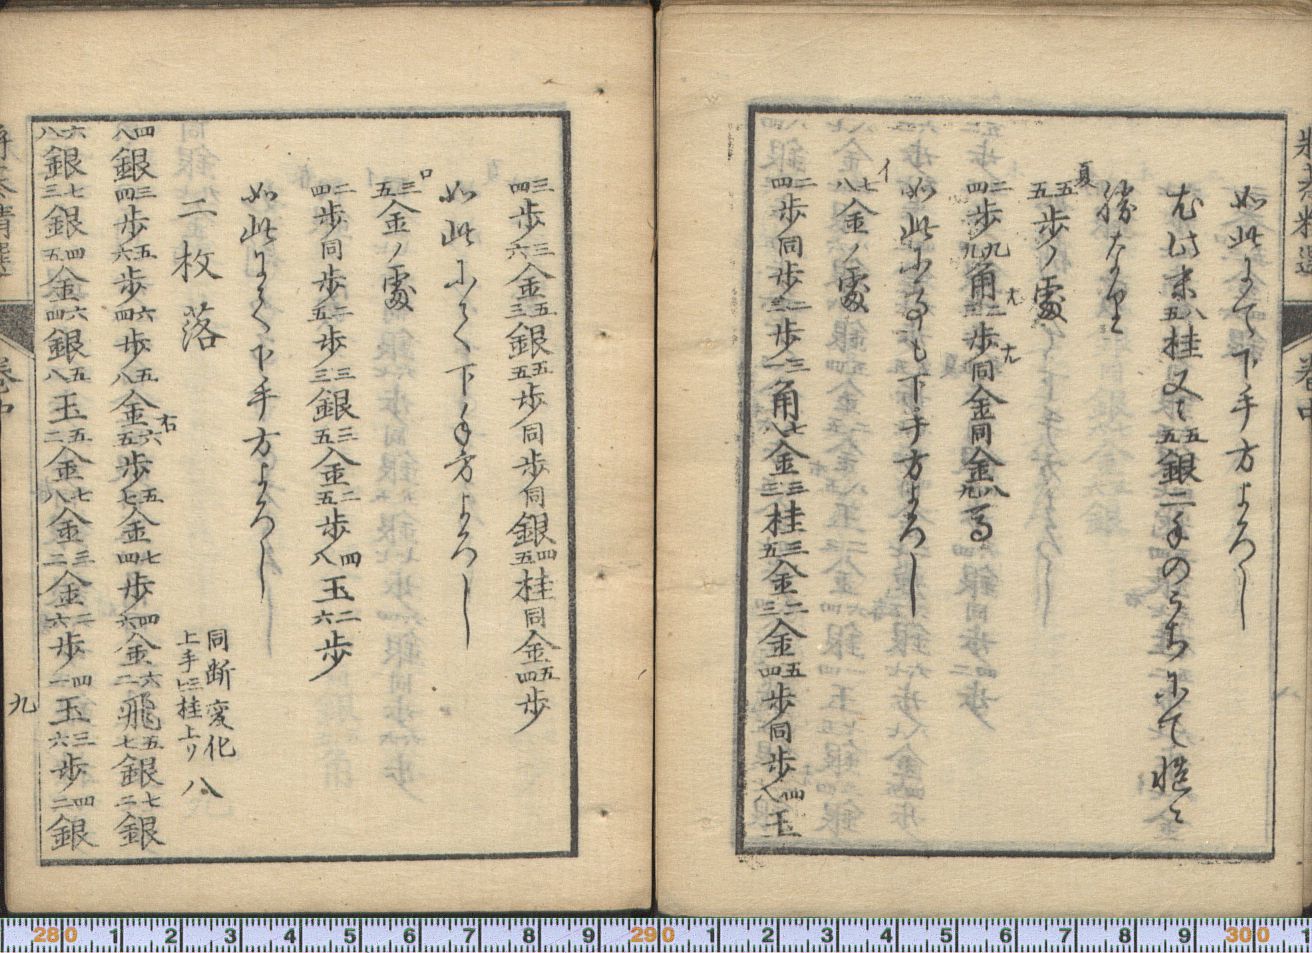 将棊精選 巻中
如此にて下手方よろし
尤此末五八桂又ハ五五銀二手のうちにて慥ニ
勝なり
夏 五五歩ノ処
四二歩九九角三二歩同金同金九八馬
如此にても下手方よろし
イ 八七金ノ処
四二歩同歩三二歩一三角八七金三三桂五三金三二金四五歩同歩八四玉
四三歩六三金三五銀五五歩同歩同銀五四桂同金四五歩
如此にて下手方よろし
ロ 五三金ノ処
四二歩同歩五二歩三三銀五三金五二歩八四玉六二歩
如此にて下手方よろし
二枚落
同断変化 八
上手二三桂上リ
八四銀四三歩六五歩四六歩八五金五六歩七五金四七歩六四金二六飛七五銀二七銀
右
八六銀三七銀五四金四六銀八五玉二五金八七金二三金六二歩一四玉六三歩二四銀
将棊精選 巻中
九
280 1 2 3 4 5 6 7 8 9 290 1 2 3 4 5 6 7 8 9 300 1